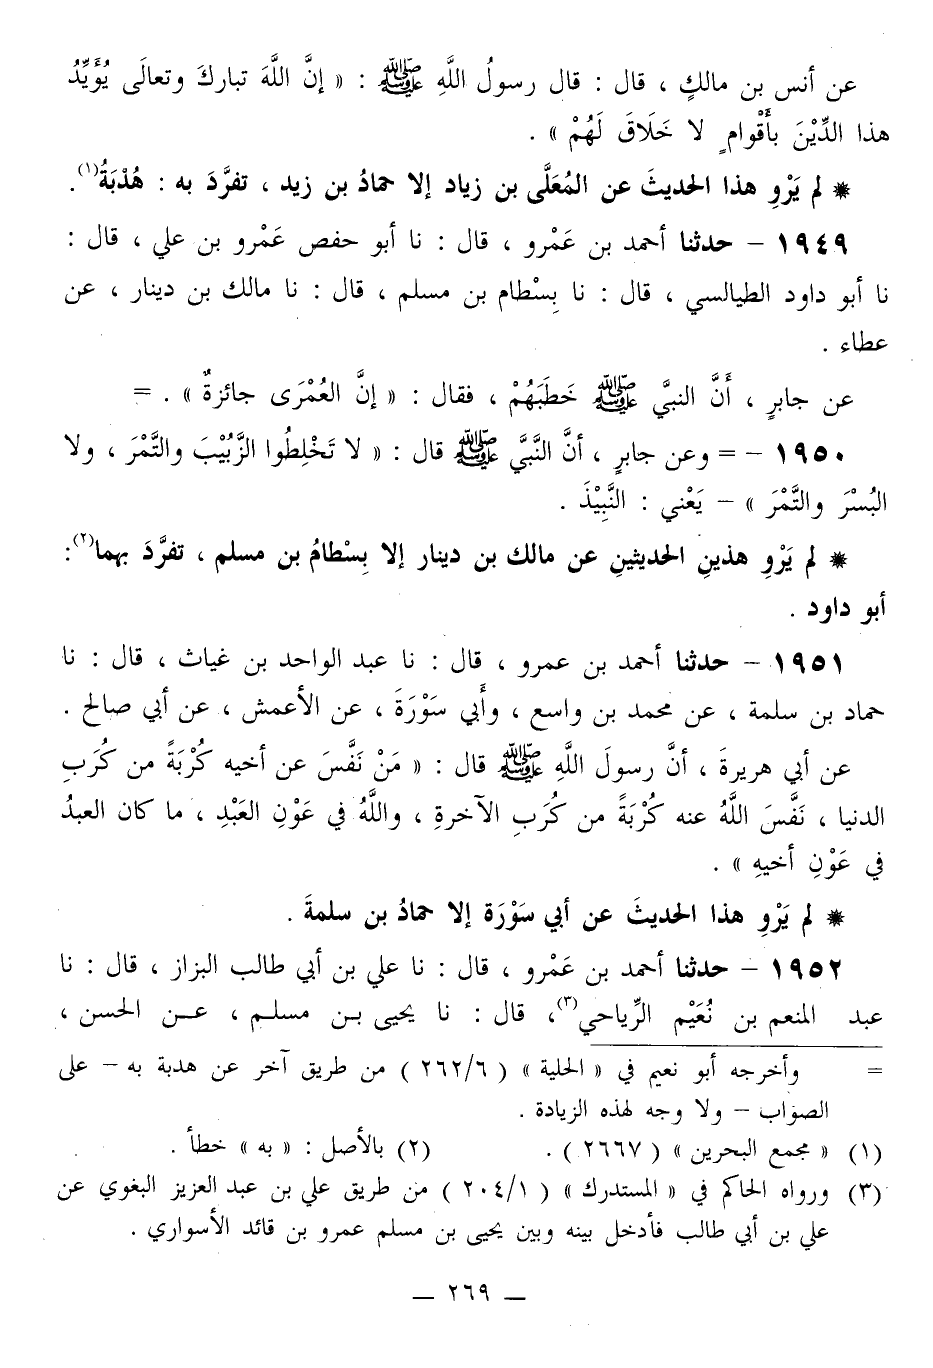 عن أنس بن مالكٍ ، قال : قال رسولُ اللَّهِ ﷺ : « إنَّ اللَّهَ تبارك وتعالَى يُؤَيِّدُ
هذا الدِّيْنَ بأَقْوامٍ لا خَلَاقَ لَهُمْ » .
* لم يَرْوِ هذا الحديثَ عن المُعَلَّى بن زياد إلا حمادُ بن زيد ، تفرَّدَ به : هُدْبَةُ(١).
١٩٤٩ – حدثنا أحمد بن عَمْرو ، قال : نا أبو حفص عَمْرو بن علي ، قال :
نا أبو داود الطيالسي ، قال : نا بِسْطام بن مسلم ، قال : نا مالك بن دينار ، عن
عطاء .
عن جابرٍ ، أَنَّ النبيَّ ﷺ خَطَبَهُمْ ، فقال : « إنَّ العُمْرَى جائزةٌ » . =
١٩٥٠ – = وعن جابرٍ ، أنَّ النَّبيَّ ﷺ قال : « لا تَخْلِطُوا الزَّبِيْبَ والتَّمْرَ ، ولا
البُسْرَ والتَّمْرَ » – يَعْني : النَّبِيْذَ .
* لم يَرْوِ هذينِ الحديثينِ عن مالك بن دينار إلا بِسْطامُ بن مسلم ، تفرَّدَ بهما(٢):
أبو داود .
١٩٥١ – حدثنا أحمد بن عمرو ، قال : نا عبد الواحد بن غياث ، قال : نا
حماد بن سلمة ، عن محمد بن واسع ، وأَبي سَوْرَةَ ، عن الأعمش ، عن أبي صالح .
عن أبي هريرةَ ، أنَّ رسولَ اللَّهِ ﷺ قال : « مَنْ نَفَّسَ عن أخيه كُرْبَةً من كُرَبِ
الدنيا ، نَفَّسَ اللَّهُ عنه كُرْبَةً من كُرَبِ الآخرةِ ، واللَّهُ في عَوْنِ العَبْدِ ، ما كان العبدُ
في عَوْنِ أخيهِ » .
* لم يَرْوِ هذا الحديثَ عن أبي سَوْرَة إلا حمادُ بن سلمةَ .
١٩٥٢ – حدثنا أحمد بن عَمْرو ، قال : نا علي بن أبي طالب البزاز ، قال : نا
عبد المنعم بن نُعَيْم الرِّياحي(٣)، قال : نا يحيى بن مسلم ، عن الحسن ،
= وأخرجه أبو نعيم في « الحلية » ( ٢٦٢/٦ ) من طريق آخر عن هدبة به – على
الصواب – ولا وجه لهذه الزيادة .
(١) « مجمع البحرين » ( ٢٦٦٧ ) . (٢) بالأصل : « به » خطأ .
(٣) ورواه الحاكم في « المستدرك » ( ٢٠٤/١ ) من طريق علي بن عبد العزيز البغوي عن
علي بن أبي طالب فأدخل بينه وبين يحيى بن مسلم عمرو بن فائد الأسواري .
– ٢٦٩ –